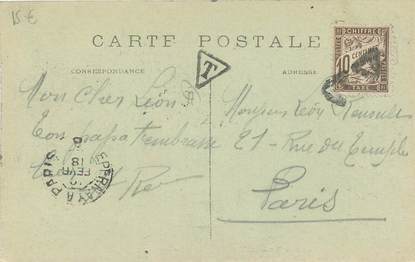 15 €
CARTE POSTALE
CORRESPONDANCE
ADRESSE
T
CHIFFRE
10 CENTIMES
TAXE
Mon Cher Léon
Ton papa t'embrasse
Monsieur Léon
21 - Rue du Temple
Paris
EPERNAY A PARIS
18 FEVR